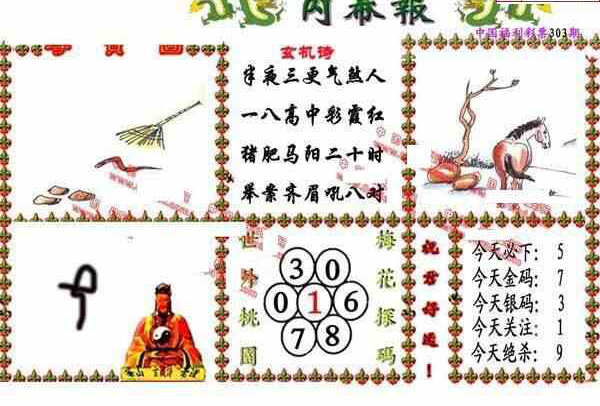 内幕報
中国福利彩票303期
玄机诗
半夜三更气煞人
一八高中彩霞红
猪肥马阳二十时
举案齐眉吼八对
世外桃園
3 0
0 1 6
7 8
梅花探碼
祝君好運!
今天必下: 5
今天金码: 7
今天银码: 3
今天关注: 1
今天绝杀: 9